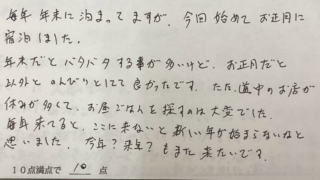 毎年 年末に泊まってますが、今回 始めて お正月に
宿泊しました。
年末だと バタバタする事が多いけど、お正月だと
以外と のんびりとしてて 良かったです。ただ、道中のお店が
休みが多くて、お昼ごはんを探すのは大変でした。
毎年来てると、ここに来ないと新しい年が始まらないなと
思いました。 今年?来年? もまた 来たいです。
10点満点で 10 点